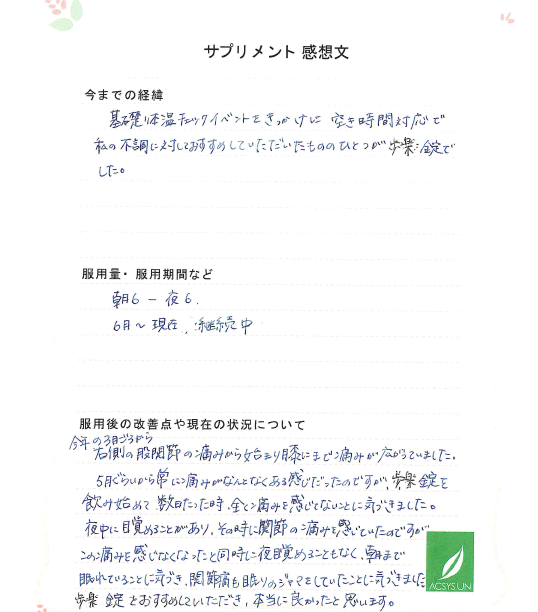 サプリメント 感想文
今までの経緯
基礎体温チェックイベントをきっかけに 空き時間対応で
私の不調に対しておすすめしていただいたもののひとつが 歩楽錠で
した。
服用量・服用期間など
朝6 ー 夜6.
6月〜現在, 継続中
服用後の改善点や現在の状況について
今年の3月ごろから
右側の股関節の痛みから始まり膝にまで痛みが広がっていました.
5月ぐらいから常に痛みがなんとなくある感じだったのですが, 歩楽錠を
飲み始めて 数日たった時, 全く痛みを感じてないことに気づきました。
夜中に目覚めることがあり, その時に関節の痛みを感じていたのですが
この痛みを感じなくなったと同時に夜目覚めることもなく, 朝まで
眠れていることに気づき, 関節痛も眠りのジャマをしていたことに気づきました
歩楽 錠をおすすめしていただき, 本当に良かったと思います。
ACSYSUN